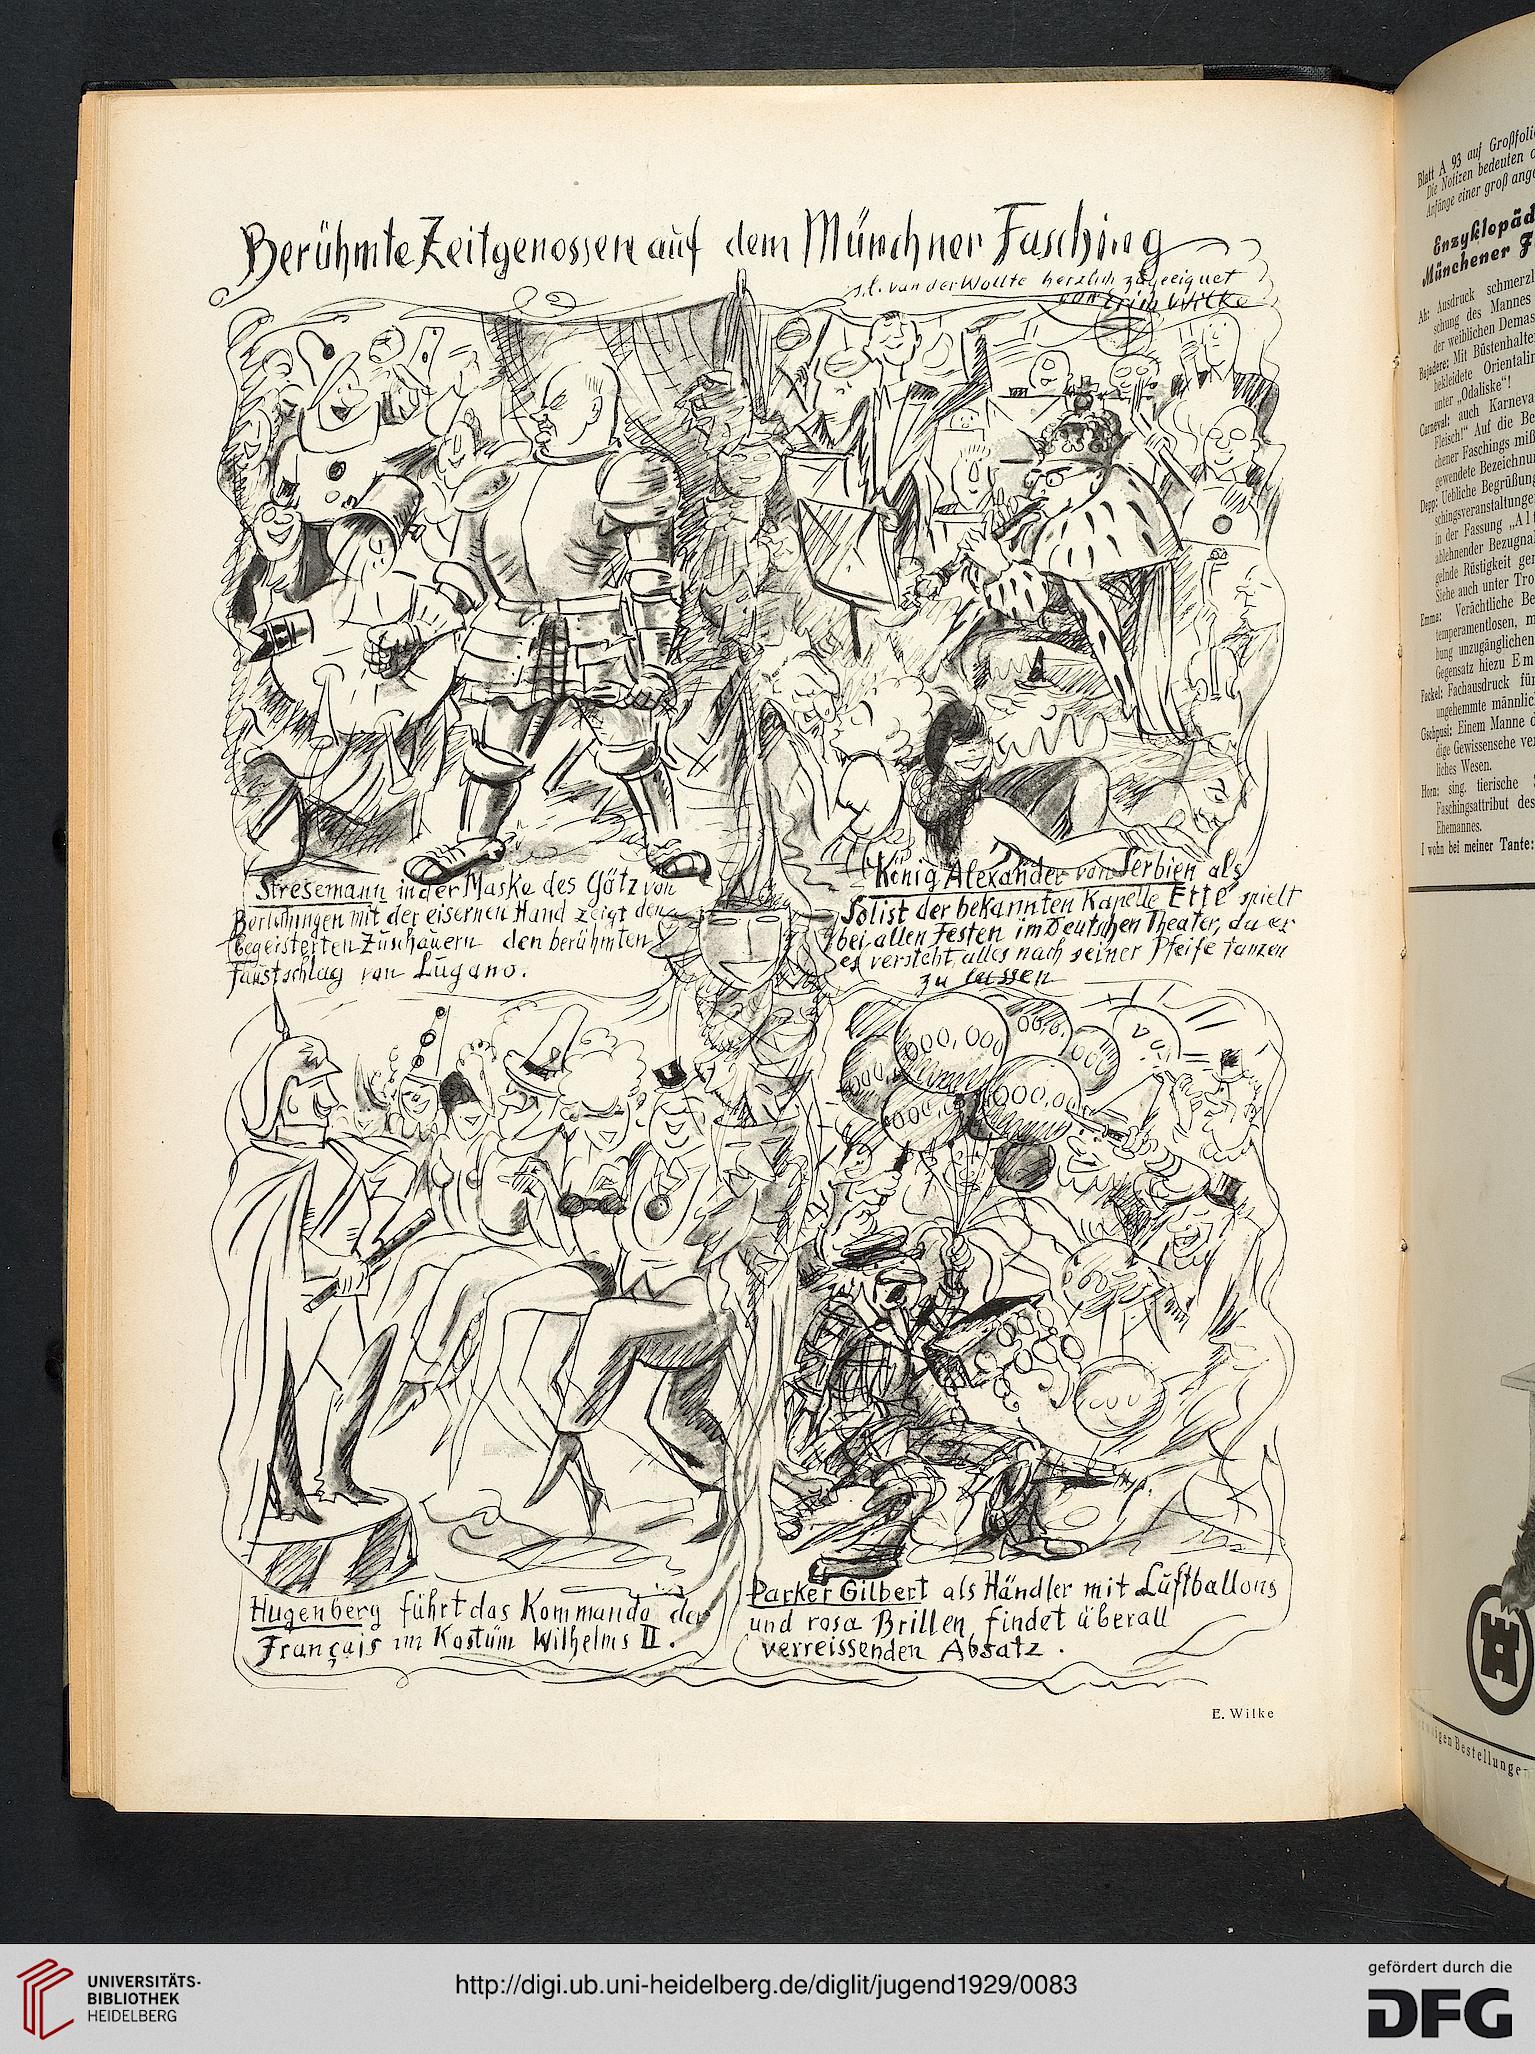 Berühmte Zeitgenossen auf dem Münchner Fasching
s.l. van der Wollte herzlich zugeeignet
von Erich Wilke
Stresemann in der Maske des Götz von
Berlichingen mit der eisernen Hand zeigt den
begeisterten Zuschauern den berühmten
Faustschlag von Lugano.
König Alexander von Serbien als
Solist der bekannten Kapelle Etté spielt
bei allen Festen im Deutschen Theater, da er
es versteht, alles nach seiner Pfeife tanzen
zu lassen
000,000
00,0
000
000
000,00
000,0
Hugenberg führt das Kommando der
Français im Kostüm Wilhelms II.
Parker Gilbert als Händler mit Luftballons
und rosa Brillen findet überall
verreissenden Absatz.
E. Wilke
Blatt A 93 auf Großfolio
Die Notizen bedeuten
Anfänge einer groß
Enzyklopäd
Münchener F
Ah: Ausdruck schmerzl
schung des Mannes
der weiblichen Demas
Bajadere: Mit Büstenhalte
bekleidete Orientalin
unter „Odaliske“!
Carneval: auch Karneva
Fleisch!“ Auf die Be
chener Faschings miß
gewendete Bezeichnun
Depp: Uebliche Begrüßung
schingsveranstaltunge
in der Fassung „Al
ablehnender Bezugna
gelnde Rüstigkeit ger
Siehe auch unter Tro
Emma: Verächtliche Be
temperamentlosen, m
bung unzugänglichen
Gegensatz hiezu Em
Fackel: Fachausdruck für
ungehemmte männlic
Gschpusi: Einem Manne
dige Gewissensehe ver
liches Wesen.
Horn: sing. tierische
Faschingsattribut des
Ehemannes.
I wohn bei meiner Tante:
igen Bestellunge
UNIVERSITÄTS-
BIBLIOTHEK
HEIDELBERG
http://digi.ub.uni-heidelberg.de/diglit/jugend1929/0083
gefördert durch die
DFG